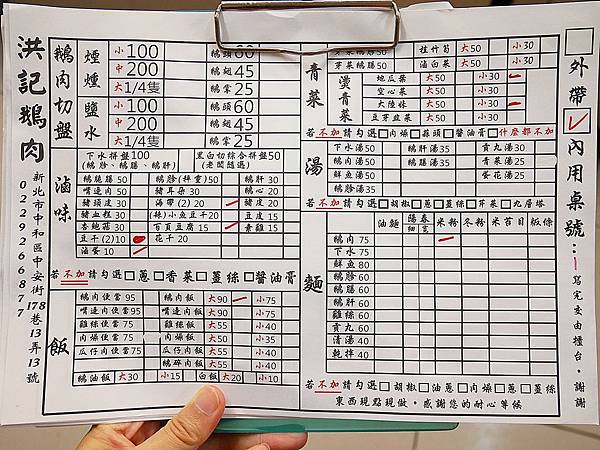 洪記鵝肉
新北市中和區中安街178巷13弄13號
022926877
鵝肉切盤
煙燻
小100 鵝頭60
中200 鵝翅45
大1/4隻 鵝掌25
鹽水
小100 鵝頭60
中200 鵝翅45
大1/4隻 鵝掌25
滷味
下水拼盤100
(鵝胗、鵝腸、鵝肝)
黑白切綜合拼盤50
(老闆隨選)
鵝脆腸50 鵝胗(秤賣)50 鵝肝30
嘴邊肉50 豬耳朵30 鵝心20
豬頭皮30 海帶(2)20 豬皮20
豬血糕30 (辣)小魚豆干20 豆皮15
杏鮑菇30 百頁豆腐15 素雞15
豆干(2)10 花干20
滷蛋10
若不加請勾選□蔥□香菜□薑絲□醬油膏
飯
鵝肉便當95 鵝肉飯 大90 小75
嘴邊肉便當75 嘴邊肉飯 大55 小40
雞絲便當75 雞絲飯 大55 小40
肉燥便當75 肉燥飯 大55 小40
瓜仔肉便當75 瓜仔肉飯 大55 小40
鵝碎肉飯 大55 小40
鵝油飯 大30 小15 白飯 大20 小10
青菜
芽菜鵝腸50 桂竹筍 大50 小30
芽菜鵝腸50 滷白菜 大50 小30
燙青菜
地瓜葉 大50 小30
空心菜 大50 小30
大陸妹 大50 小30
豆芽韭菜 大50 小30
若不加請勾選□肉燥□蒜頭□醬油膏□什麼都不加
湯
下水湯50 鵝肝湯35 貢丸湯30
鮮魚湯50 鵝腸湯35 青菜湯30
鵝血湯50 蛋花湯30
鵝胗湯35
若不加請勾選□胡椒□蔥□薑絲□芹菜□九層塔
麵
油麵 陽春 細 寬 米粉 冬粉 米苔目 板條
鵝肉75
下水75
鮮魚80
鵝胗60
鵝腸60
鵝肝60
雞絲60
貢丸60
清湯40
乾拌40
若不加請勾選□胡椒□油蔥□肉燥□蔥□薑絲
東西現點現做,感謝您的耐心等候
□外帶
□內用桌號:
寫完交由櫃台,謝謝